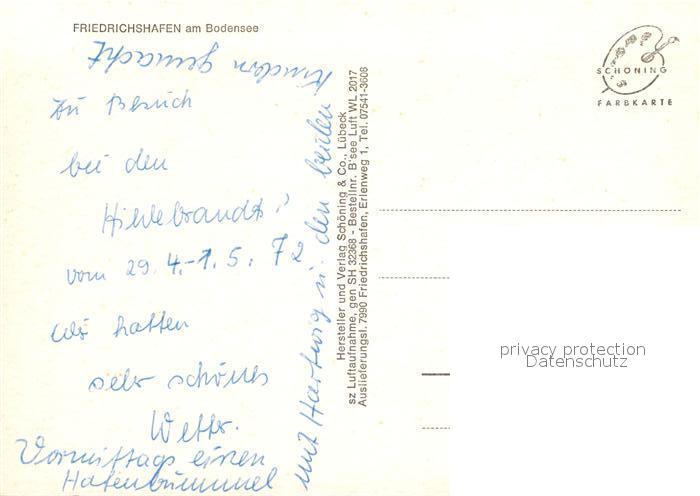 FRIEDRICHSHAFEN am Bodensee
Zu Besuch
bei den
Hildebrandts!
vom 29. 4.-1. 5. 72
Wir hatten
sehr schönes
Wetter.
Vormittags einen
Hafenbummel
mit Hartwig u. den beiden
Kindern gemacht
Hersteller und Verlag Schöning & Co., Lübeck
sz Luftaufnahme, gen SH 32368 - Bestellnr. B'see Luft WL 2017
Auslieferungsl. 7990 Friedrichshafen, Erlenweg 1, Tel. 07541-3608
SCHÖNING
FARBKARTE
privacy protection
Datenschutz